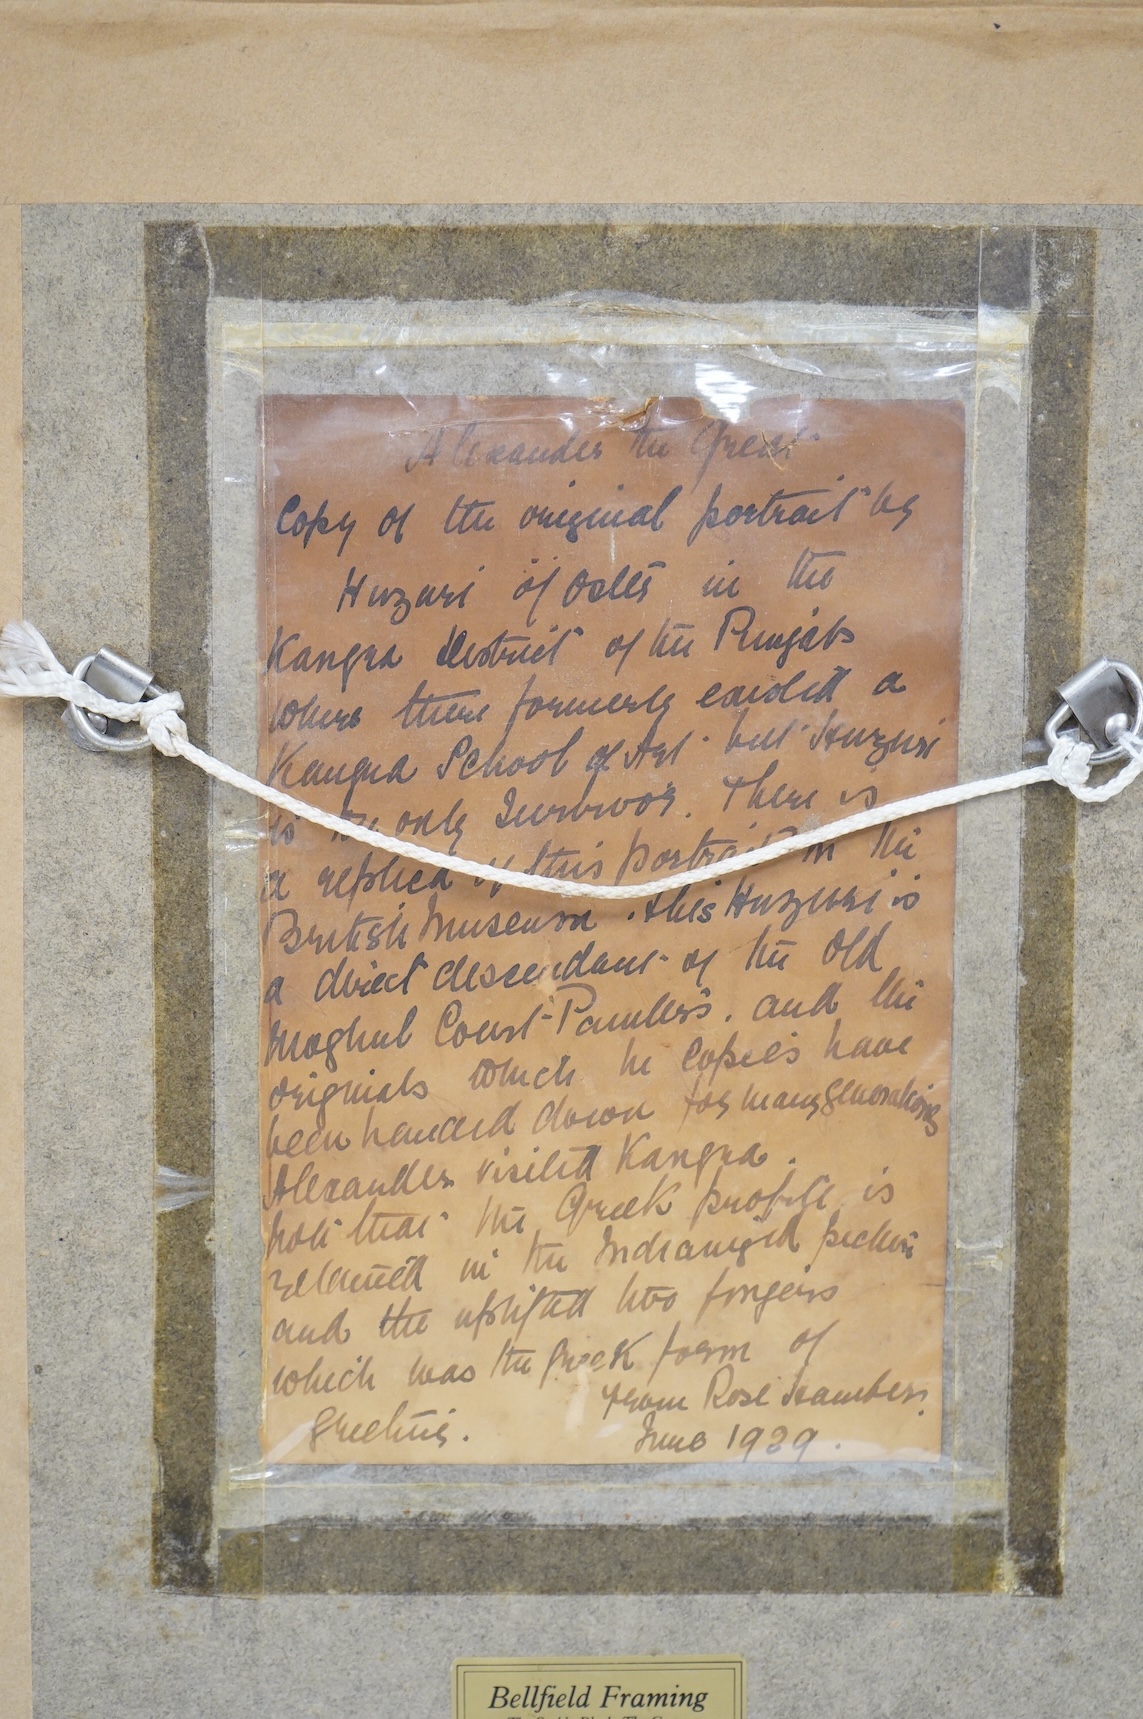 Alexander the Great
Copy of the original portrait by
Huzuri of in the
Kangra District of the Punjab
where there formerly existed a
Kangra School of Art but Huzuri
is the only Survivor. There is
a replica of this portrait in the
British Museum. This Huzuri is
a direct descendant of the old
Moghul Court Painters. and the
originals which he copies have
been handed down for many generations
Alexander visited Kangra.
note that the Greek profile is
retained in the Indianized picture
and the uplifted two fingers
which was the Greek form of
greeting. from Rose
June 1929.
Bellfield Framing